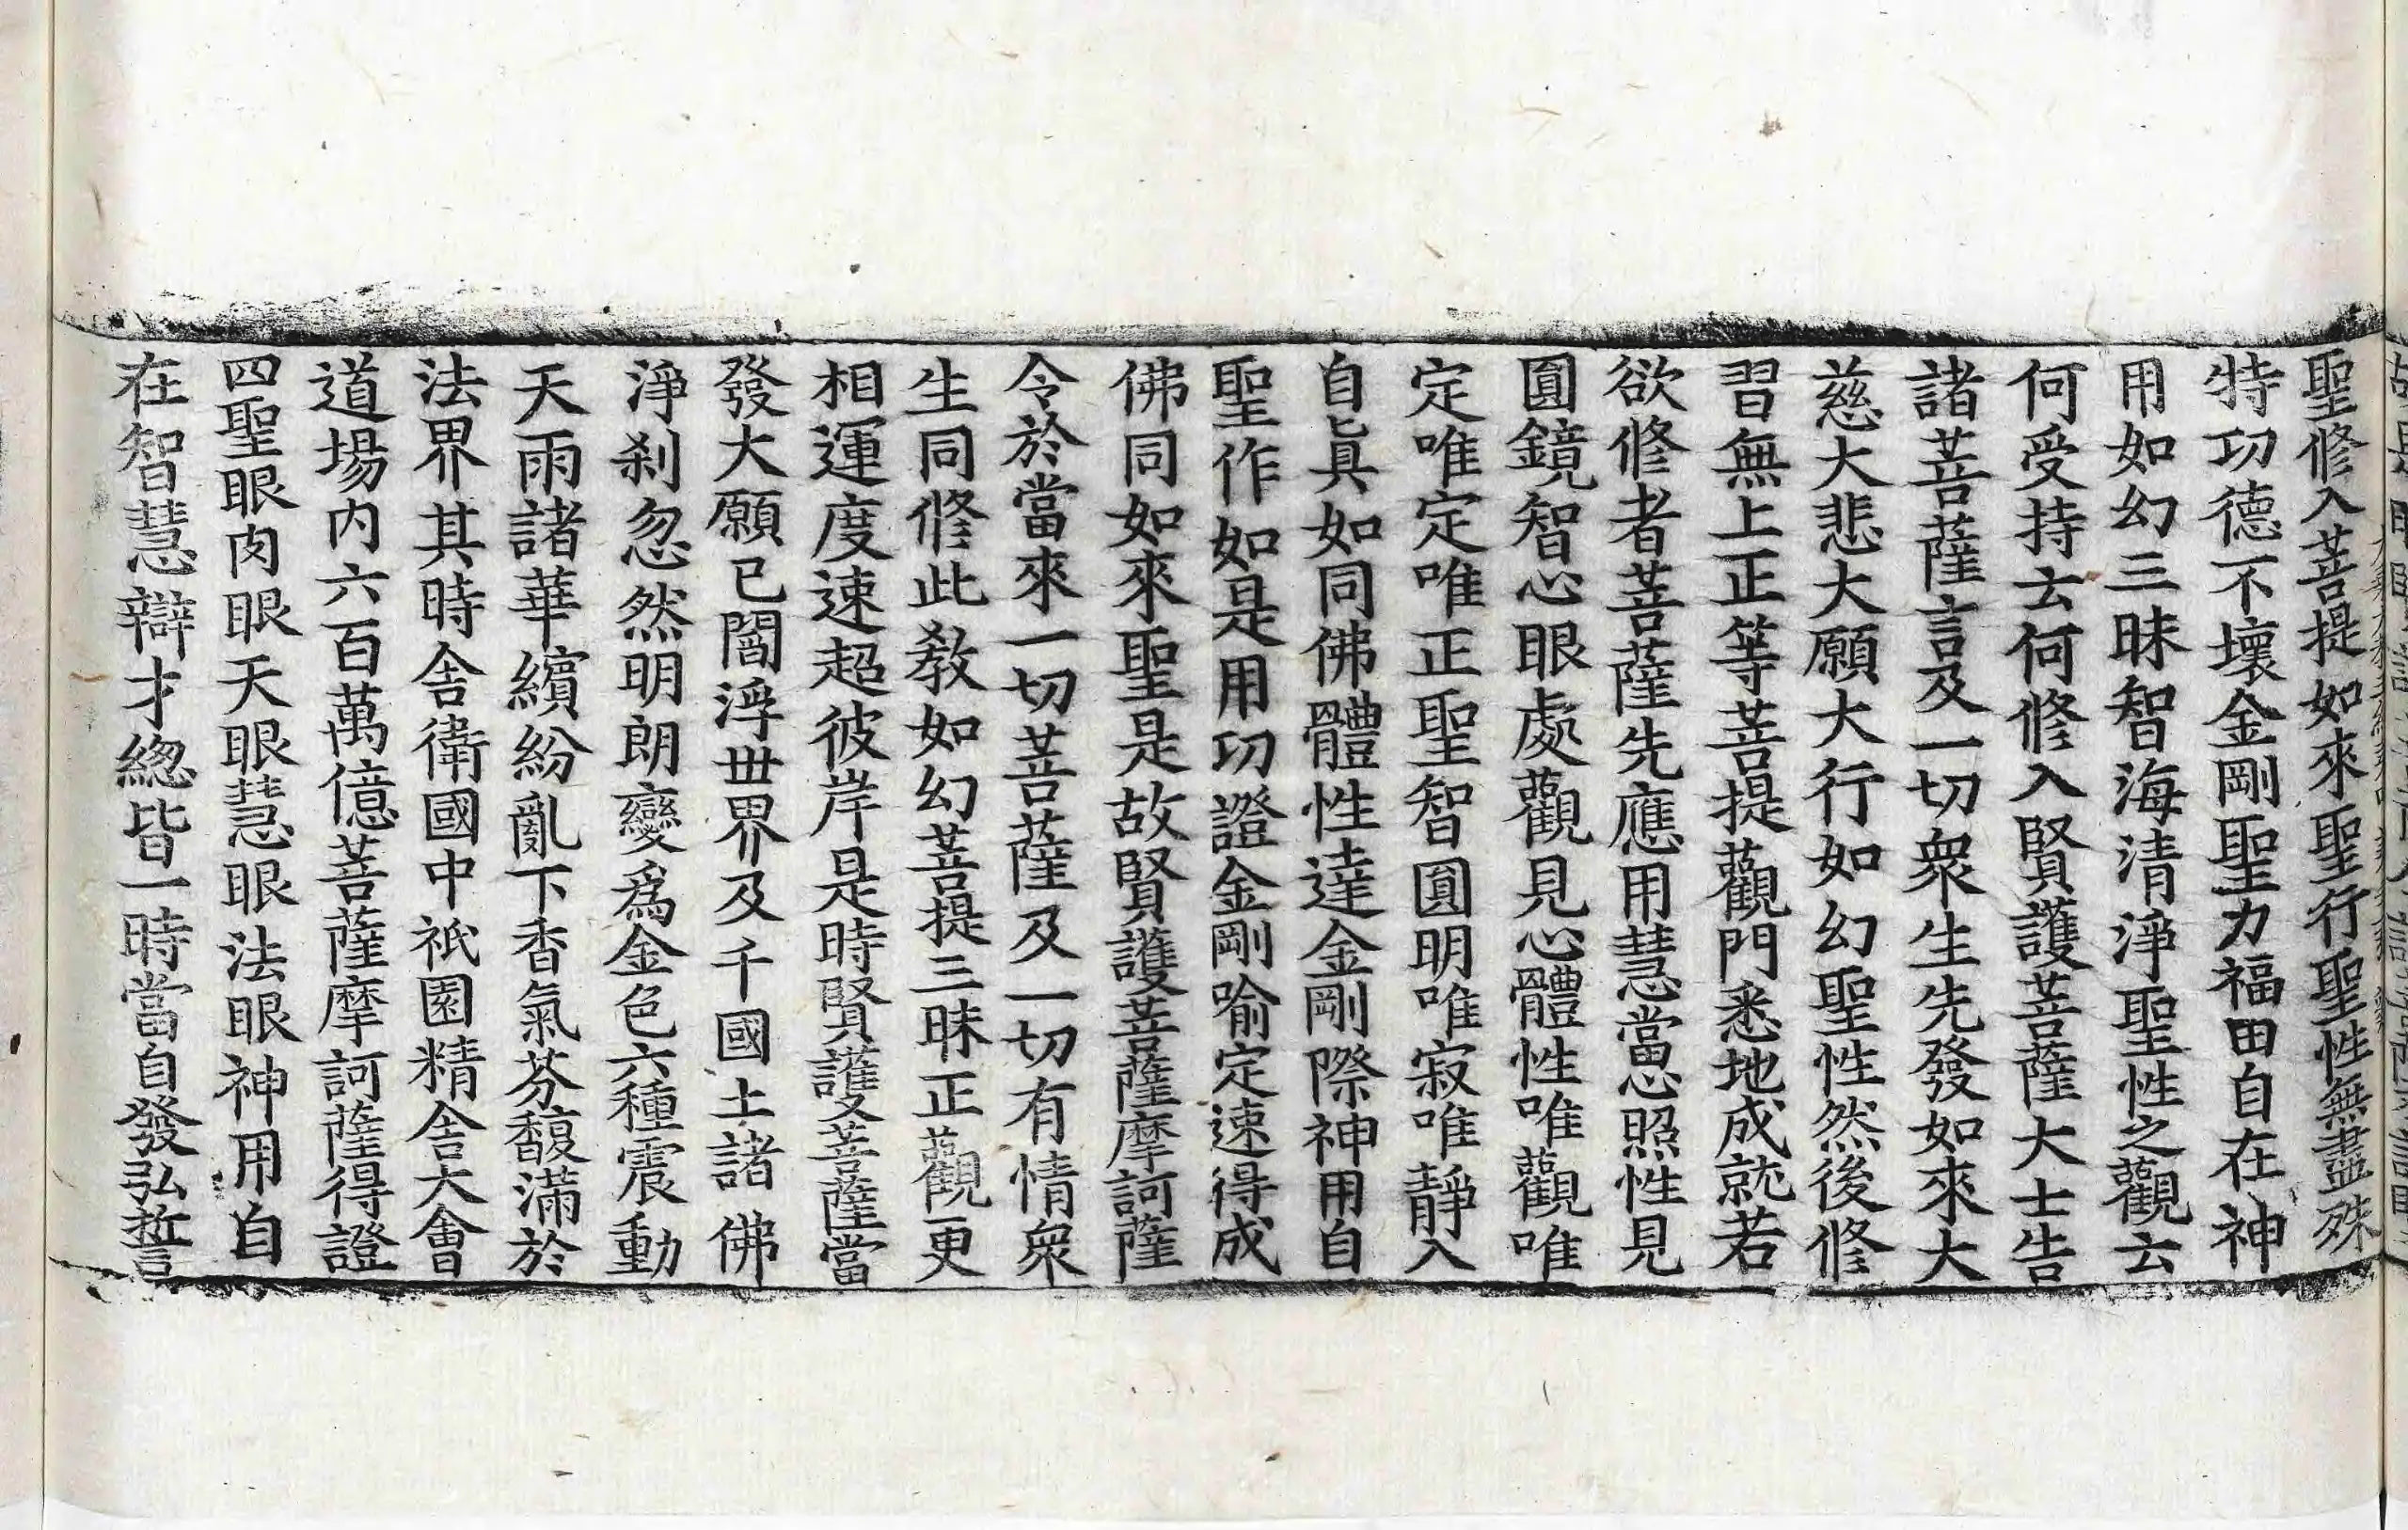 聖修入菩提如來聖行聖性無盡殊
特功德不壞金剛聖力福田自在神
用如幻三昧智海清淨聖性之觀云
何受持云何修入賢護菩薩大士告
諸菩薩言及一切衆生先發如來大
慈大悲大願大行如幻聖性然後修
習無上正等菩提觀門悉地成就若
欲修者菩薩先應用慧當心照性見
圓鏡智心眼處觀見心體性唯觀唯
定唯定唯正聖智圓明唯寂唯靜入
自眞如同佛體性達金剛際神用自
聖作如是用功證金剛喻定速得成
佛同如來聖是故賢護菩薩摩訶薩
令於當來一切菩薩及一切有情衆
生同修此教如幻菩提三昧正觀更
相運度速超彼岸是時賢護菩薩當
發大願已閻浮世界及千國土諸佛
淨刹忽然明朗變爲金色六種震動
天雨諸華繽紛亂下香氣芬馥滿於
法界其時舍衛國中祇園精舍大會
道場內六百萬億菩薩摩訶薩得證
四聖眼肉眼天眼慧眼法眼神用自
在智慧辯才緫皆一時當自發弘誓